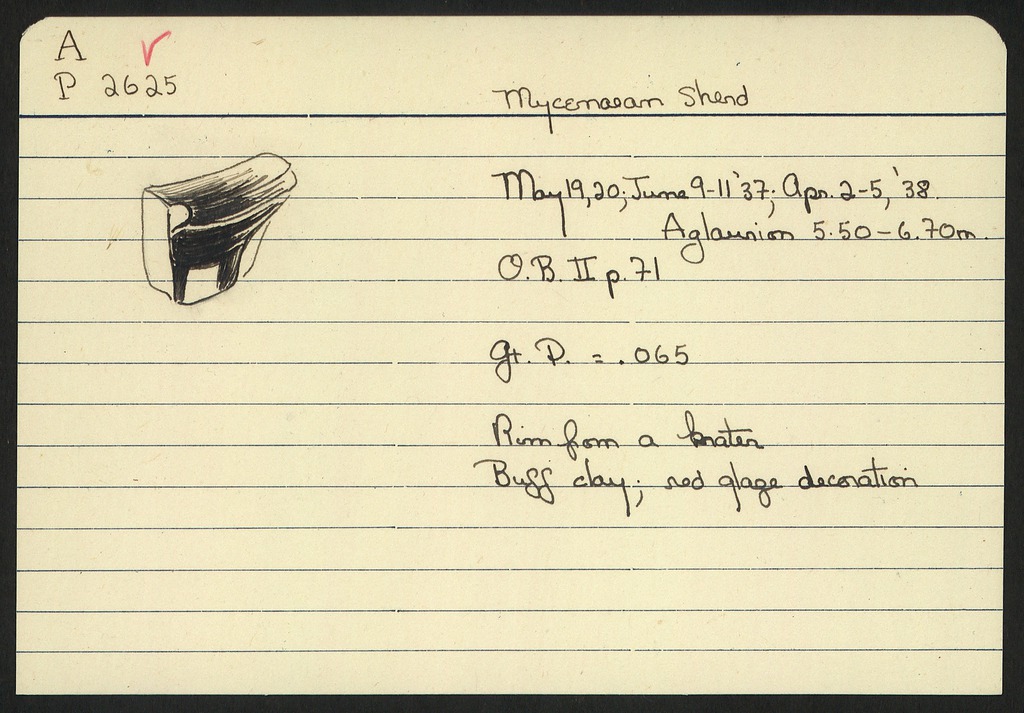 A
P 2625
Mycenaean Sherd
May 19, 20; June 9-11 '37; Apr. 2-5, '38.
Aglaurion 5.50-6.70m.
O.B. II p. 71
Gr. D. = .065
Rim from a krater
Buff clay; red glaze decoration